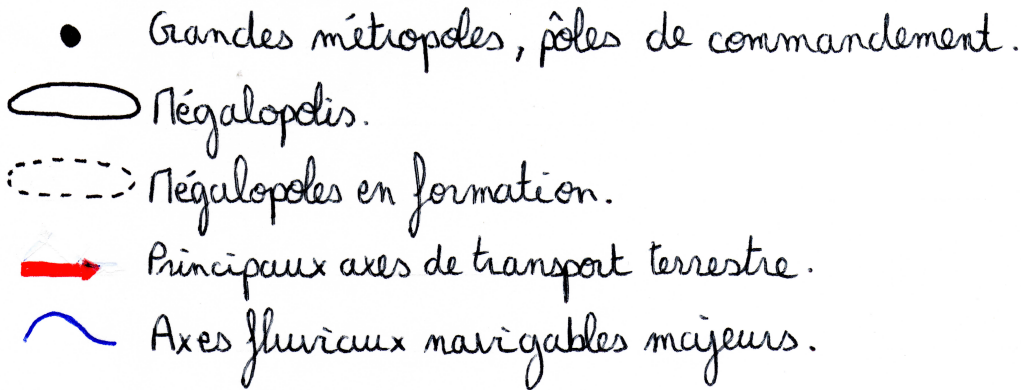 Grandes métropoles, pôles de commandement.
Mégalopolis.
Mégalopoles en formation.
Principaux axes de transport terrestre.
Axes fluviaux navigables majeurs.